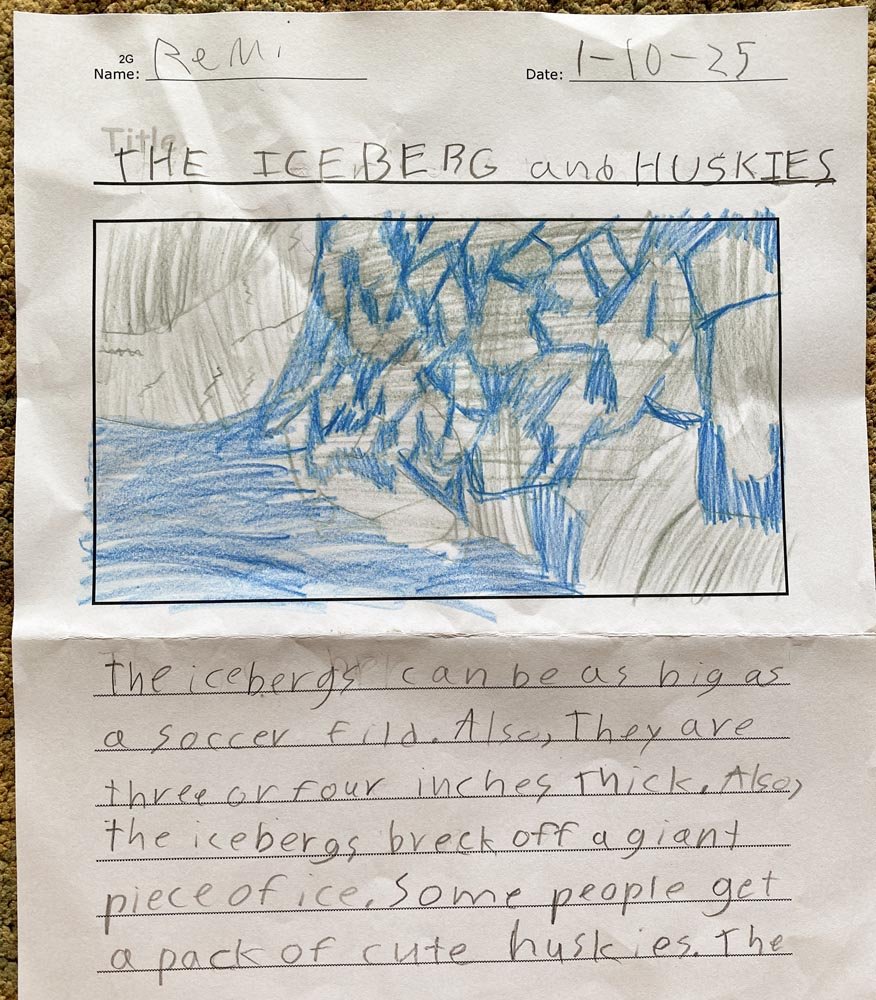 2G
Name: Remi
Date: 1-10-25
Title
THE ICEBERG and HUSKIES
the icebergs can be as big as
a soccer fild. Also, They are
three or four inches thick. Also,
the icebergs breck off a giant
piece of ice. Some people get
a pack of cute huskies. The